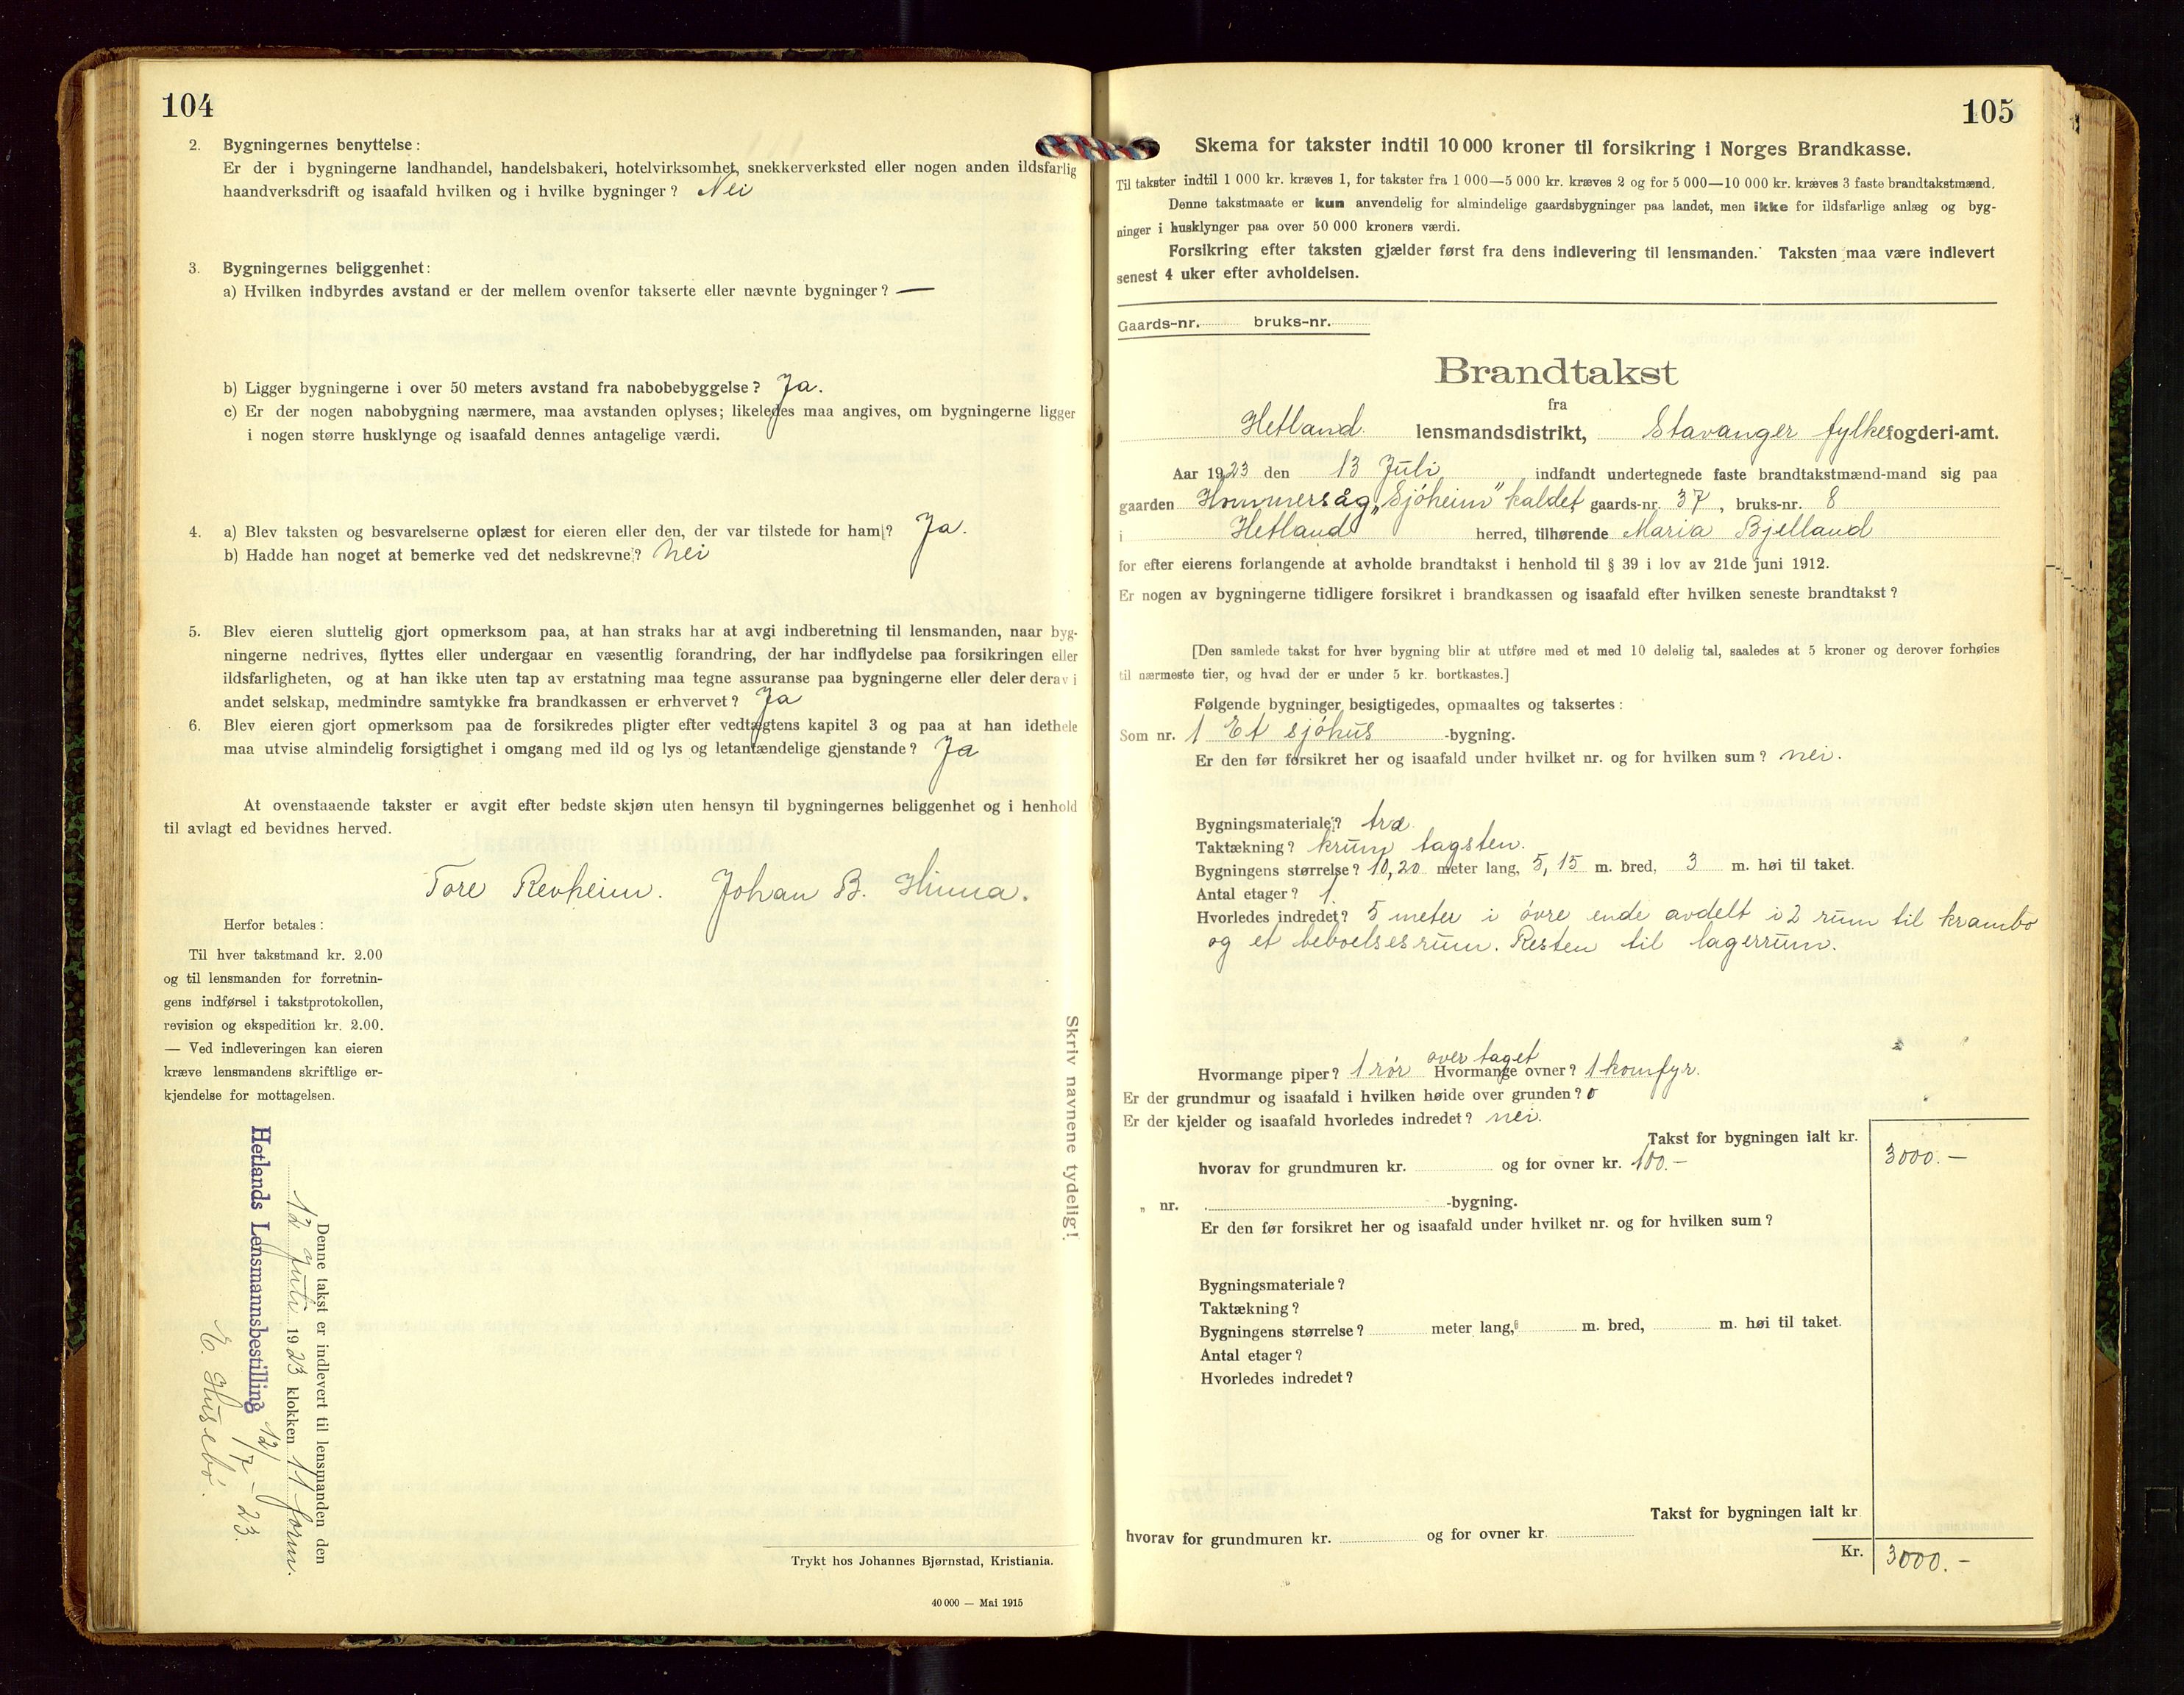 104
2. Bygningernes benyttelse:
Er der i bygningerne landhandel, handelsbakeri, hotelvirksomhet, snekkerverksted eller nogen anden ildsfarlig
haandverksdrift og isaafald hvilken og i hvilke bygninger? Nei
3. Bygningernes beliggenhet:
a) Hvilken indbyrdes avstand er der mellem ovenfor takserte eller nævnte bygninger? —
b) Ligger bygningerne i over 50 meters avstand fra nabobebyggelse? Ja.
c) Er der nogen nabobygning nærmere, maa avstanden oplyses; likeledes maa angives, om bygningerne ligger
i nogen større husklynge og isaafald dennes antagelige værdi.
4. a) Blev taksten og besvarelserne oplæst for eieren eller den, der var tilstede for ham? Ja.
b) Hadde han noget at bemerke ved det nedskrevne? Nei
5. Blev eieren sluttelig gjort opmerksom paa, at han straks har at avgi indberetning til lensmanden, naar byg-
ningerne nedrives, flyttes eller undergaar en væsentlig forandring, der har indflydelse paa forsikringen eller
ildsfarligheten, og at han ikke uten tap av erstatning maa tegne assuranse paa bygningerne eller deler derav i
andet selskap, medmindre samtykke fra brandkassen er erhvervet? Ja
6. Blev eieren gjort opmerksom paa de forsikredes pligter efter vedtægtens kapitel 3 og paa at han idethele
maa utvise almindelig forsigtighet i omgang med ild og lys og letantændelige gjenstande? Ja
At ovenstaaende takster er avgit efter bedste skjøn uten hensyn til bygningernes beliggenhet og i henhold
til avlagt ed bevidnes herved.
Tore Revheim. Johan B. Hinna.
Herfor betales:
Til hver takstmand kr. 2.00
og til lensmanden for forretnin-
gens indførsel i takstprotokollen,
revision og ekspedition kr. 2.00.
— Ved indleveringen kan eieren
kræve lensmandens skriftlige er-
kjendelse for mottagelsen.
Skriv navnene tydelig!
Denne takst er indlevert til lensmanden den
12 Juli 1923 klokken 11 form.
Hetlands Lensmannsbestilling 12/7 - 23.
E. Husebö.
Trykt hos Johannes Bjørnstad, Kristiania.
40 000 — Mai 1915
105
Skema for takster indtil 10 000 kroner til forsikring i Norges Brandkasse.
Til takster indtil 1 000 kr. kræves 1, for takster fra 1 000—5 000 kr. kræves 2 og for 5 000—10 000 kr. kræves 3 faste brandtakstmænd.
Denne takstmaate er kun anvendelig for almindelige gaardsbygninger paa landet, men ikke for ildsfarlige anlæg og byg-
ninger i husklynger paa over 50 000 kroners værdi.
Forsikring efter taksten gjælder først fra dens indlevering til lensmanden. Taksten maa være indlevert
senest 4 uker efter avholdelsen.
Gaards-nr. bruks-nr.
Brandtakst
fra
Hetland. lensmandsdistrikt, Stavanger fylke fogderi-amt.
Aar 1923 den 13 Juli indfandt undertegnede faste brandtakstmænd-mand sig paa
gaarden Hommersåg „Sjöheim" kaldet gaards-nr. 37, bruks-nr. 8
i Hetland herred, tilhørende Maria Bjelland
for efter eierens forlangende at avholde brandtakst i henhold til § 39 i lov av 21de juni 1912.
Er nogen av bygningerne tidligere forsikret i brandkassen og isaafald efter hvilken seneste brandtakst?
[Den samlede takst for hver bygning blir at utføre med et med 10 delelig tal, saaledes at 5 kroner og derover forhøies
til nærmeste tier, og hvad der er under 5 kr. bortkastes.]
Følgende bygninger besigtigedes, opmaaltes og taksertes:
Som nr. 1 Et sjöhus -bygning.
Er den før forsikret her og isaafald under hvilket nr. og for hvilken sum? nei.
Bygningsmateriale? træ.
Taktækning? krum tagsten.
Bygningens størrelse? 10,20 meter lang, 5,15 m. bred, 3 m. høi til taket.
Antal etager? 1.
Hvorledes indredet? 5 meter i övre ende avdelt i 2 rum til krambo
og et beboelsesrum. Resten til lagerrum.
over taget
Hvormange piper? 1 rör Hvormange ovner? 1 komfyr.
Er der grundmur og isaafald i hvilken høide over grunden? 0
Er der kjelder og isaafald hvorledes indredet? nei.
Takst for bygningen ialt kr.
hvorav for grundmuren kr. og for ovner kr. 100.- 3000.—
„ nr. -bygning.
Er den før forsikret her og isaafald under hvilket nr. og for hvilken sum?
Bygningsmateriale?
Taktækning?
Bygningens størrelse? meter lang, m. bred, m. høi til taket.
Antal etager?
Hvorledes indredet?
Takst for bygningen ialt kr
hvorav for grundmuren kr. og for ovner kr.
Kr. 3000.-